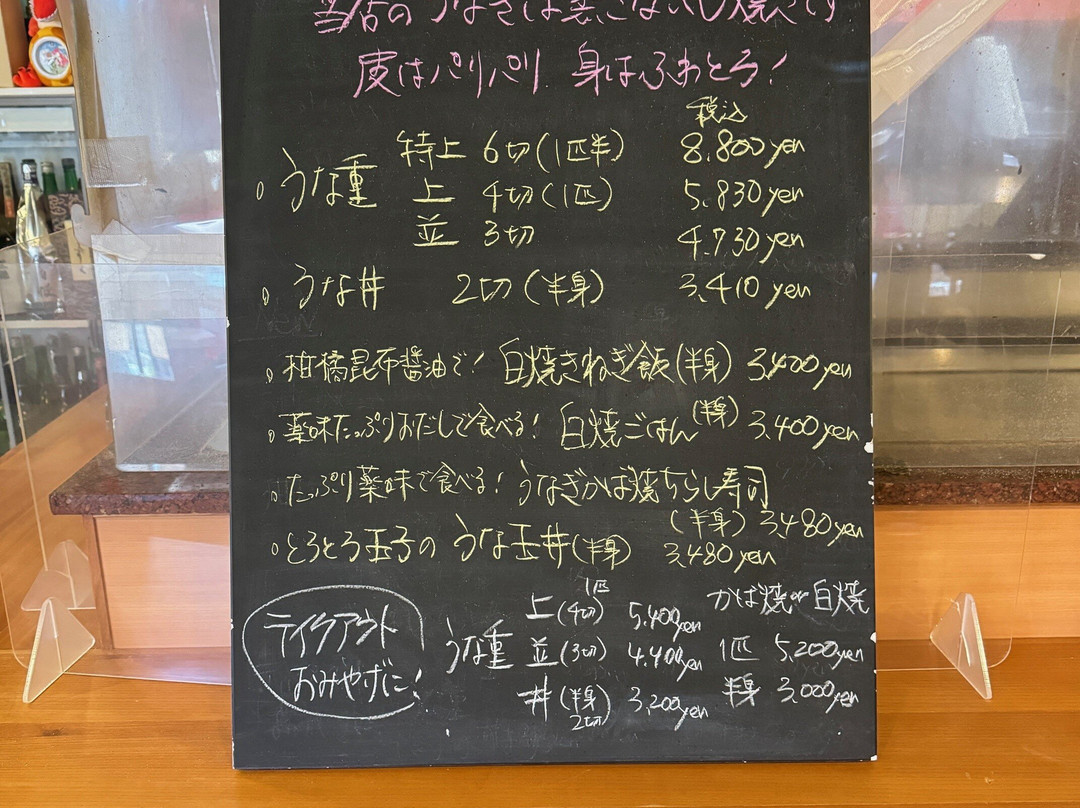 当店のうなぎは蒸さない地焼きです
皮はパリパリ 身はふわとろ!
税込
うな重 特上 6切(1匹半) 8.800yen
上 4切(1匹) 5.830yen
並 3切 4.730yen
うな丼 2切(半身) 3.410yen
柑橘昆布醤油で! 白焼きねぎ飯(半身) 3.400yen
薬味たっぷりおだしで食べる! 白焼ごはん(半身) 3.400yen
たっぷり薬味で食べる! うなぎかば焼ちらし寿司
(半身) 3.480yen
とろとろ玉子の うな玉丼(半身) 3.480yen
テイクアウト
おみやげに!
うな重 上(4切) 1匹 5.400yen
並(3切) 4.400yen
丼(半身 2切) 3.200yen
かば焼or白焼
1匹 5.200yen
半身 3.000yen